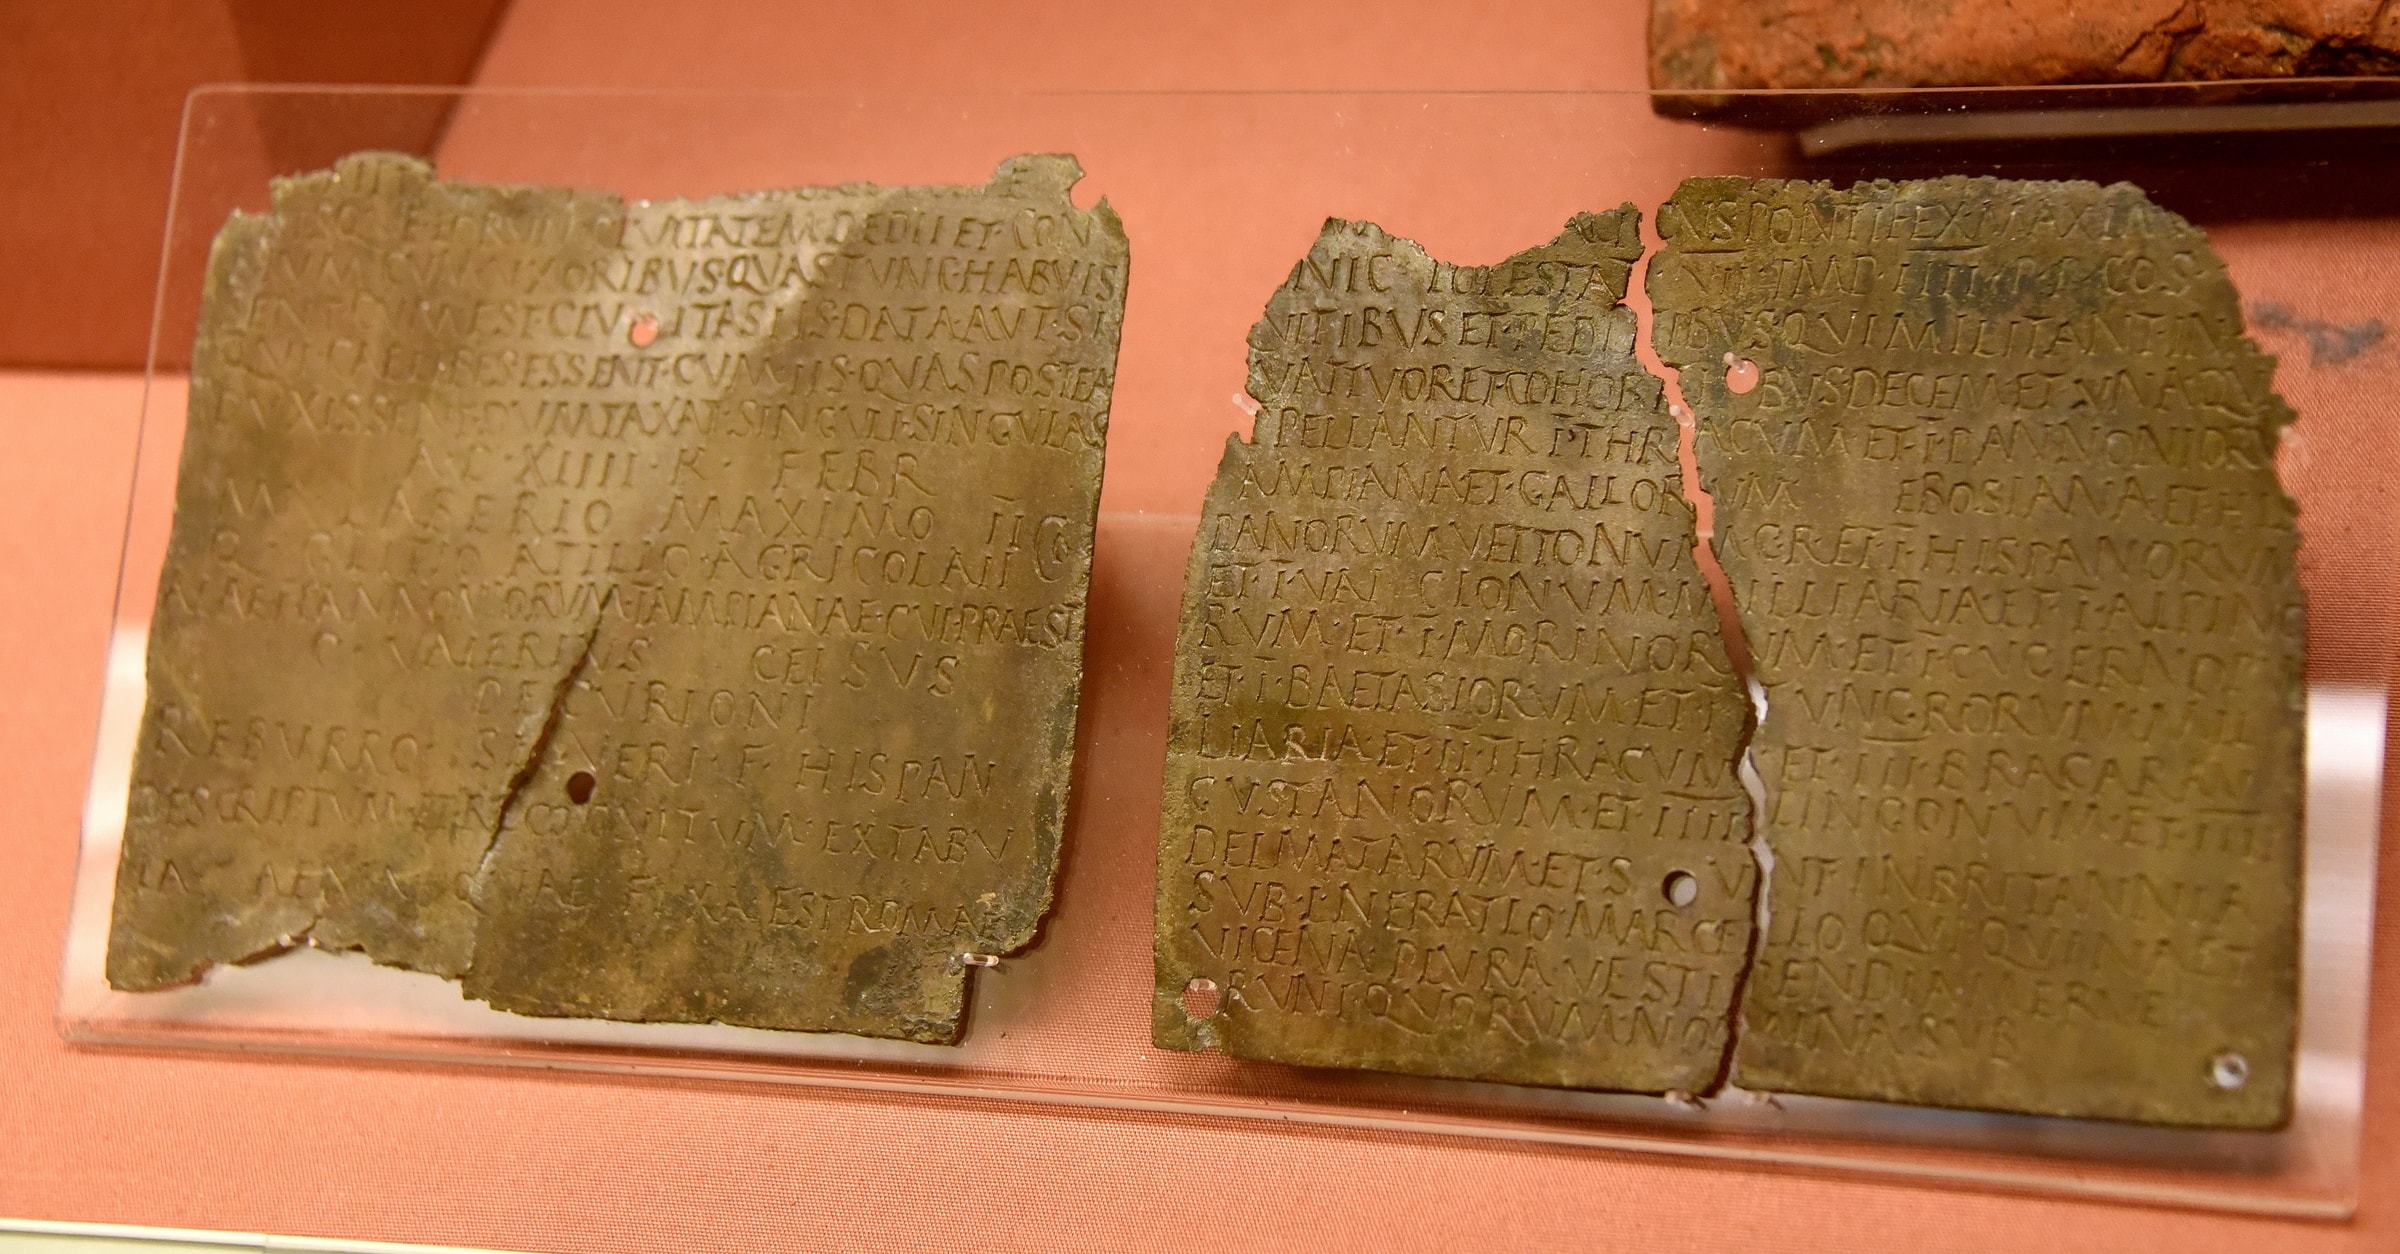 ISQUE EORUM CIVITATEM·DEDIT ET·CON
UM·CUM·UXORIBUS·QUAS TUNC·HABUIS
ENT·CUM·EST·CIVITAS IIS·DATA·AUT·SI
QUI·CAELIBES·ESSENT·CUM·IIS·QUAS POSTEA
DUXISSENT·DUMTAXAT·SINGULI·SINGULAS
A·D·XIIII·K· FEBR
M·LABERIO MAXIMO II COS
Q·GLITIO ATILIO·AGRICOLA II
PANNONIORUM·TAMPIANAE·CUI·PRAEST
C·VALERIUS CELSUS
DECURIONI
REBURRO· SEVERI·F· HISPAN
DESCRIPTUM·ET·RECOGNITUM·EX TABU
LA AENEA QUAE FIXA EST ROMAE
CUS PONTIFEX·MAXIM
NIC POTESTAT VII·IMP·IIII·P·P·COS·
UITIBUS ET·PEDITIBUS·QUI MILITANT IN
UATTUOR ET·COHORTIBUS·DECEM·ET·UNA·QU
PELLANTUR·I·THRACUM·ET·I·PANNONIOR
AMPIANA·ET·GALLORUM EBOSIANA·ET·HI
PANORUM·VETTONUM·C·R·ET·I·HISPANORUM
ET·I·VAL CIONUM·MILLIARIA·ET·I·ALPINO
RUM·ET·I·MORINORUM·ET·I·CUGERNOR
ET·I·BAETASIORUM·ET·I·TUNGRORUM·MIL
LIARIA·ET·II·THRACUM·ET·III·BRACARAU
GUSTANORUM·ET·IIII·LINGONUM·ET·IIII·
DELMATARUM·ET·SUNT·IN BRITANNIA
SUB·L·NERATIO·MARCELLO QUI QUINA·ET
VICENA·PLURAVE STIPENDIA MERUE
RUNT·QUORUM·NOMINA SUB